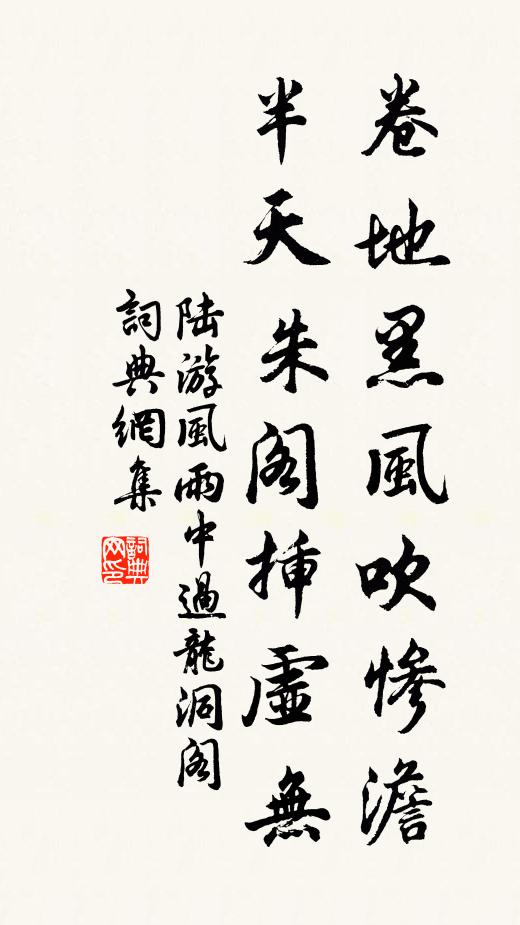 卷地黑風吹慘澹
半天朱閣插虛無
陆游風雨中過龍洞阁
詞典網集
詞典网印